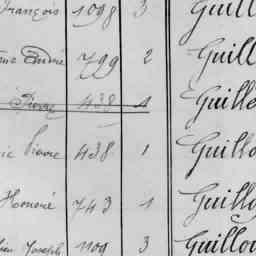 François 1098 3 Guill
André 799 2 Guill
Pierre 438 1 Guille
Pierre 438 1 Guillo
Honoré 743 1 Guill
Joseph 1109 3 Guillou